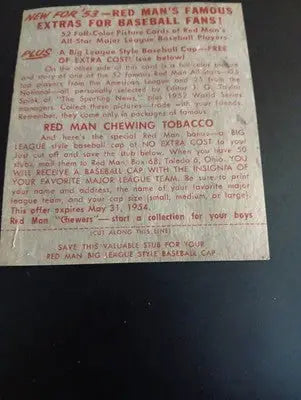 NEW FOR '53 — RED MAN'S FAMOUS
EXTRAS FOR BASEBALL FANS!
52 Full-Color Picture Cards of Red Man's
All-Star Major League Baseball Players
PLUS A Big League Style Baseball Cap—FREE
OF EXTRA COST! (see below)
On the other side of this card is a full-color picture
and story of one of the 52 famous Red Man All-Stars—25
top players from the American League and 25 from the
National—all selected by Editor J. G. Taylor
Spink of "The Sporting News," plus 1952 World Series
managers. Collect these pictures—trade with your friends.
Remember, they come only in packages of famous
RED MAN CHEWING TOBACCO
as the special Red Man bonus—a BIG
LEAGUE style baseball cap at NO EXTRA COST to you!
Just cut off and save the stub below. When you have 50
stubs, mail them to Red Man, Box 68, Toledo 6, Ohio. YOU
WILL RECEIVE A BASEBALL CAP WITH THE INSIGNIA OF
YOUR FAVORITE MAJOR LEAGUE TEAM. Be sure to print
your name and address, the name of your favorite major
league team, and your cap size (small, medium, or large).
This offer expires May 31, 1954.
Red Man "Chewers"—start a collection for your boys
(CUT ALONG THIS LINE)
SAVE THIS VALUABLE STUB FOR YOUR
RED MAN BIG LEAGUE STYLE BASEBALL CAP